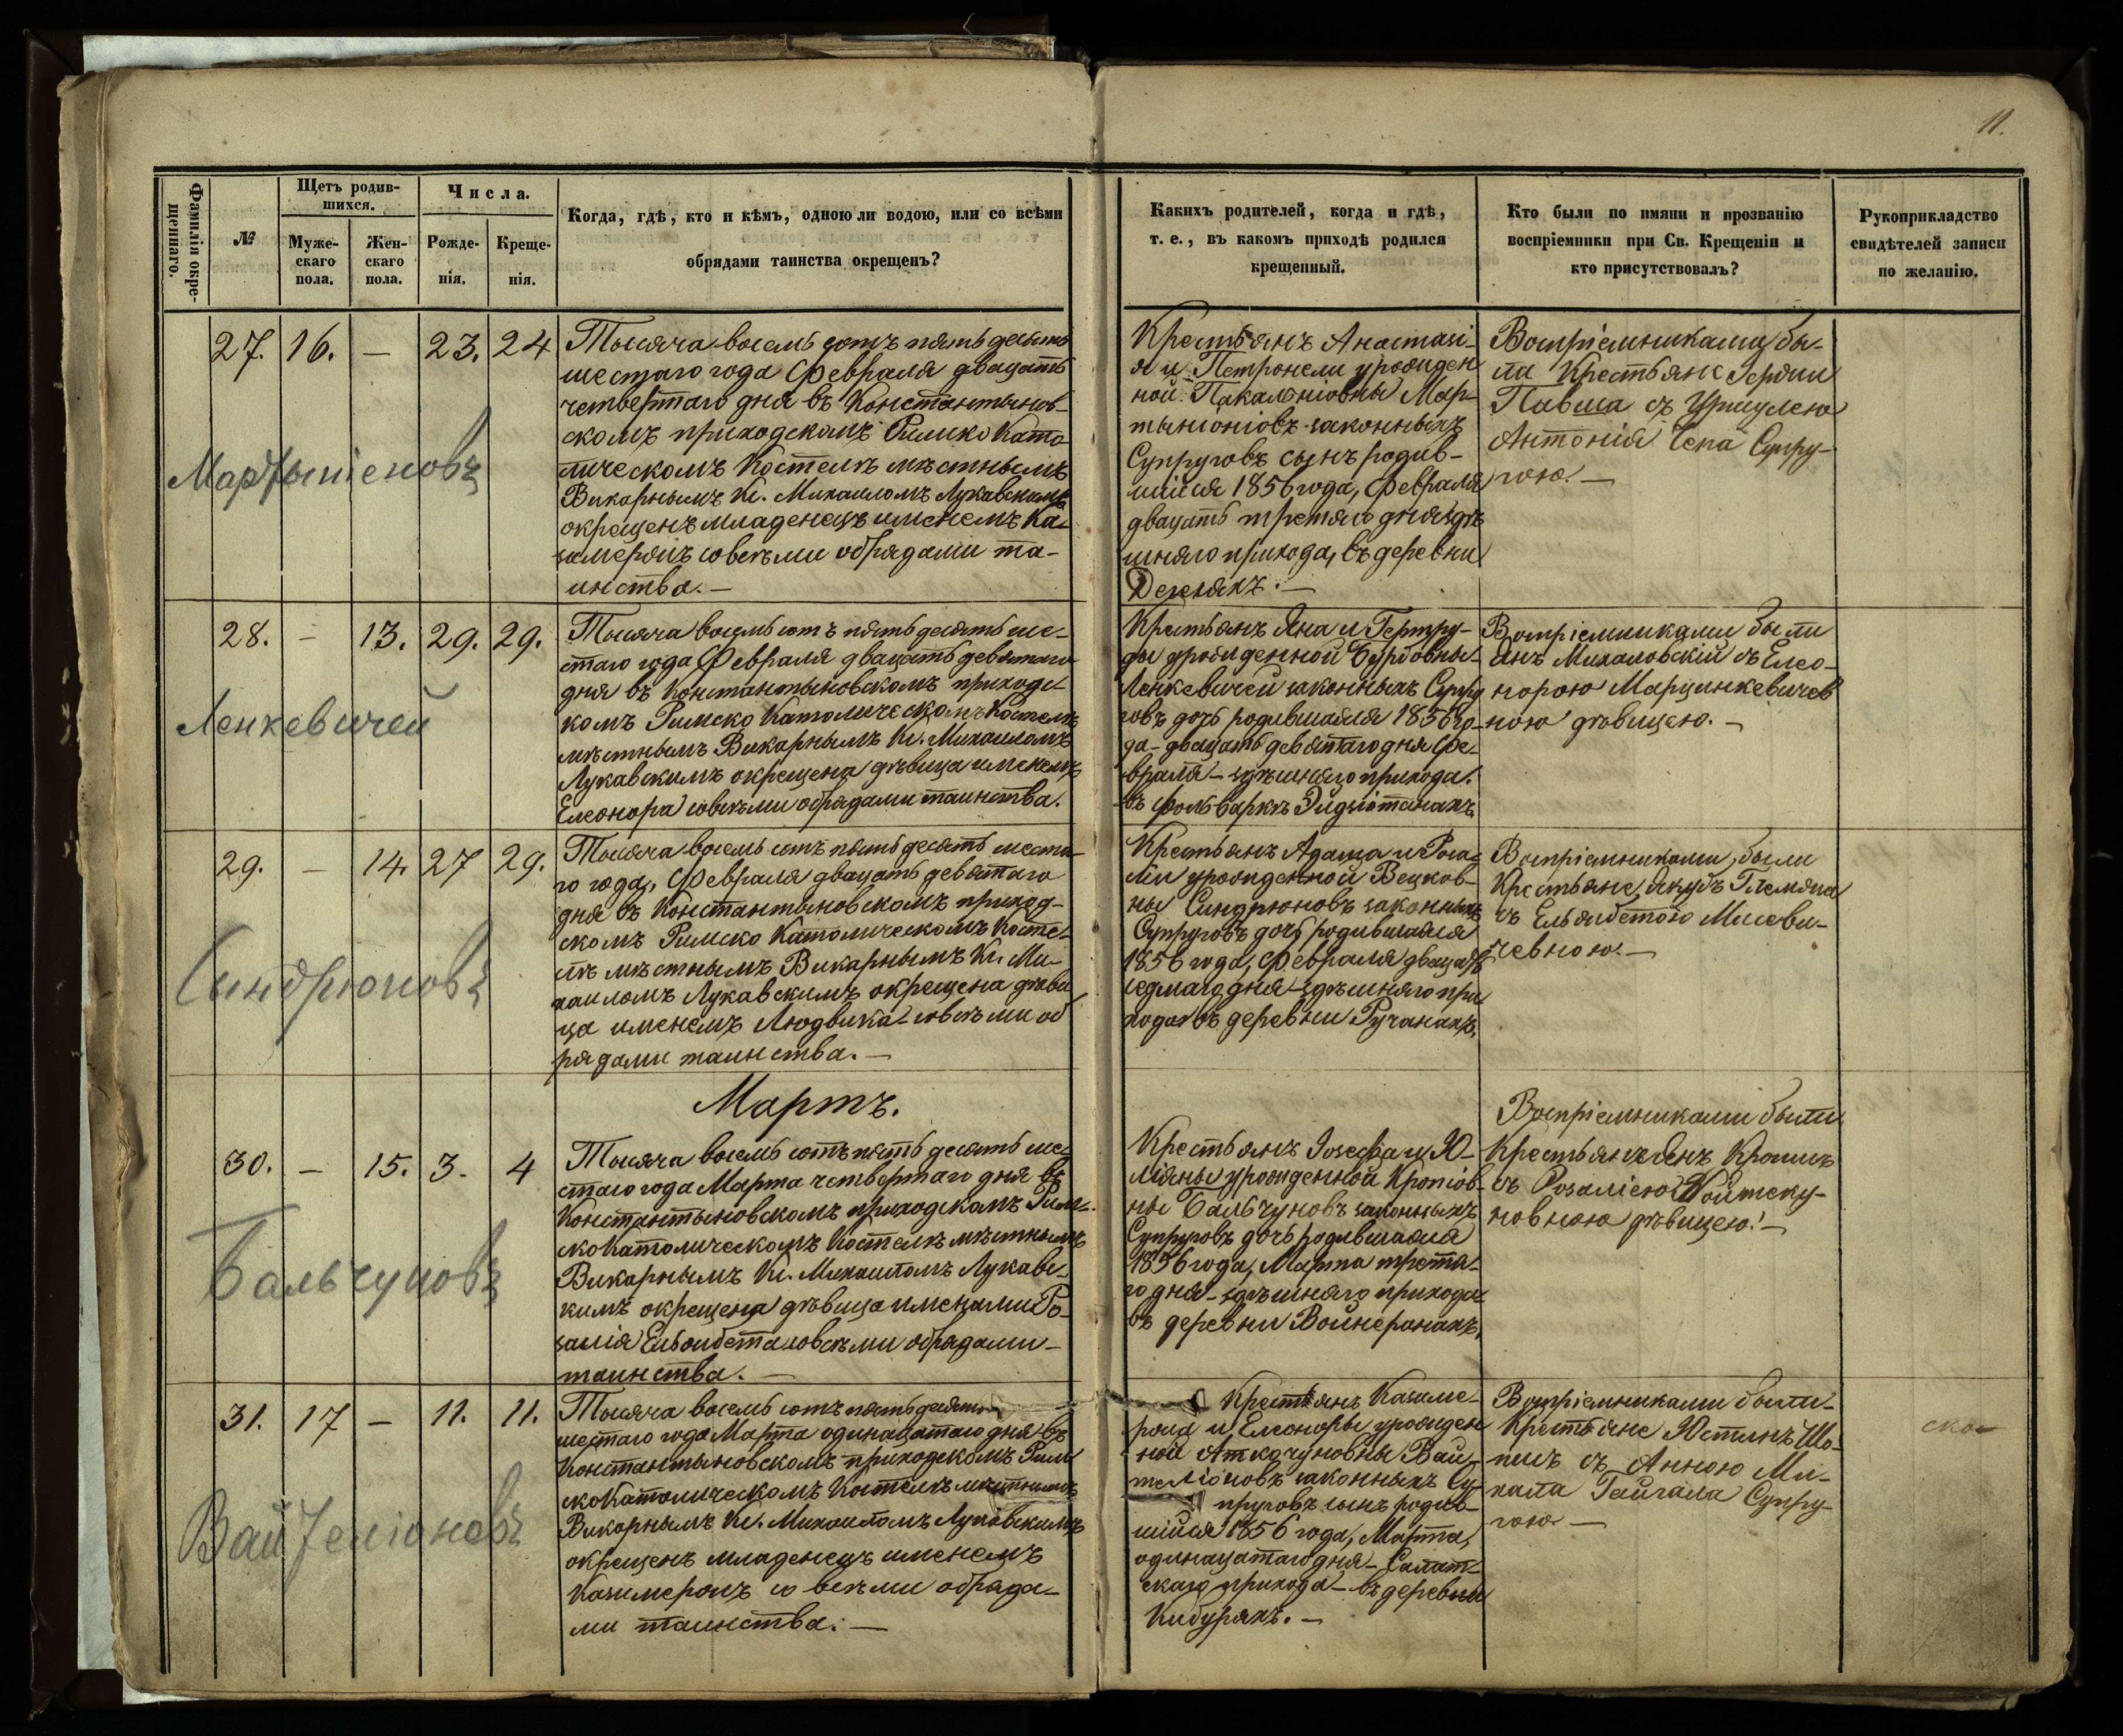 11.
Фамилія окрещеннаго.
№
Щетъ родившихся.
Мужескаго пола.
Женскаго пола.
Числа.
Рожденія.
Крещенія.
Когда, гдѣ, кто и кѣмъ, одною ли водою, или со всѣми
обрядами таинства окрещенъ?
Какихъ родителей, когда и гдѣ,
т. е., въ какомъ приходѣ родился
крещенный.
Кто были по имяни и прозванію
воспріемники при Св. Крещеніи и
кто присутствовалъ?
Рукоприкладство
свидѣтелей записи
по желанію.
27. 16. — 23. 24
Мартыніоновъ
Тысяча восемь сотъ пять десятъ
шестаго года Февраля двацать
четвертаго дня въ Константынов-
скомъ приходскомъ Римско Като
лическомъ Костелѣ мѣстнымъ
Викарнымъ Кс. Михаиломъ Лукавскимъ
окрещенъ младенецъ именемъ Ка-
зимеромъ со всѣми обрядами та-
инства.—
Крестьянъ Анастазі-
я и Петронели урожден
ной Пакальніовны Мар-
тыніоніовъ законныхъ
Супруговъ сынъ родив-
шійся 1856 года, Февраля
двацать третяго дня здѣ
шняго прихода, въ деревни
Воспріемниками бы-
ли Крестьяне
Павша съ Уршулею
Антонія Чепа Супру-
гою.—
28. — 13. 29. 29.
Ленкевичей
Тысяча восемь сотъ пять десять ше-
стаго года Февраля двацать девятаго
дня въ Константыновскомъ приходс-
комъ Римско Католическомъ Костелѣ
мѣстнымъ Викарнымъ Кс. Михаиломъ
Лукавскимъ окрещена дѣвица именемъ
Елеонора со всѣми обрядами таинства.
Крестьянъ Яна и Гертру-
ды урожденной Бурбовны
Ленкевичей законныхъ Супру
говъ дочь родившаяся 1856 го-
да - двацать девятаго дня Фе-
враля - здѣшняго прихода.
въ фольваркѣ
Воспріемниками были
Янъ Михаловскій съ Елео-
норою Марцинкевичев
ною дѣвицею.—
29. — 14. 27 29.
Синдрюновъ
Тысяча восемь сотъ пять десять шеста-
го года, Февраля двацать девятаго
дня въ Константыновскомъ приход-
скомъ Римско Католическомъ Косте-
лѣ мѣстнымъ Викарнымъ Кс. Ми-
хаиломъ Лукавскимъ окрещена дѣви
ца именемъ Людвика со всѣми об
рядами таинства.—
Крестьянъ Адама и Роза-
ліи урожденной Вецков-
ны Синдрюновъ законныхъ
Супруговъ дочь родившаяся
1856 года, Февраля двацать
седмаго дня - здѣшняго при
хода въ деревни Ручанахъ.
Воспріемниками были
Крестьяне Якубъ
съ Ельзбетою Мисеви-
чевною.—
Мартъ.
30. — 15. 3. 4
Бальчуновъ
Тысяча восемь сотъ пять десять ше-
стаго года Марта четвертаго дня въ
Константыновскомъ приходскомъ Рим-
ско Католическомъ Костелѣ мѣстнымъ
Викарнымъ Кс. Михаиломъ Лукавс-
кимъ окрещена дѣвица именами Ро-
залія Ельзбета со всѣми обрядами
таинства.—
Крестьянъ Іозефа и Ю-
ліяны урожденной Кропіов-
ны Бальчуновъ законныхъ
Супруговъ дочь родившаяся
1856 года, Марта третя-
го дня - здѣшняго прихода
въ деревни Войнеранахъ.
Воспріемниками были
Крестьянъ Янъ
съ Розаліею Войтеку-
новною дѣвицею.—
31. 17 — 11. 11.
Вайтеліоновъ
Тысяча восемь сотъ пять десять
шестаго года Марта одинацатаго дня въ
Константыновскомъ приходскомъ Рим
ско Католическомъ Костелѣ мѣстнымъ
Викарнымъ Кс. Михаиломъ Лукавскимъ
окрещенъ младенецъ именемъ
Казимеромъ со всѣми обряда-
ми таинства.—
Крестьянъ Казиме-
ра и Елеоноры урожден
ной Аткочуновны Вай-
теліоновъ законныхъ Су-
пруговъ сынъ родив-
шійся 1856 года, Марта,
одинацатаго дня - Салат-
скаго прихода - въ деревни
Кибурахъ.—
Воспріемниками были
Крестьяне Юстинъ
съ Анною Ми-
хала Гайгала Супру-
гою.—